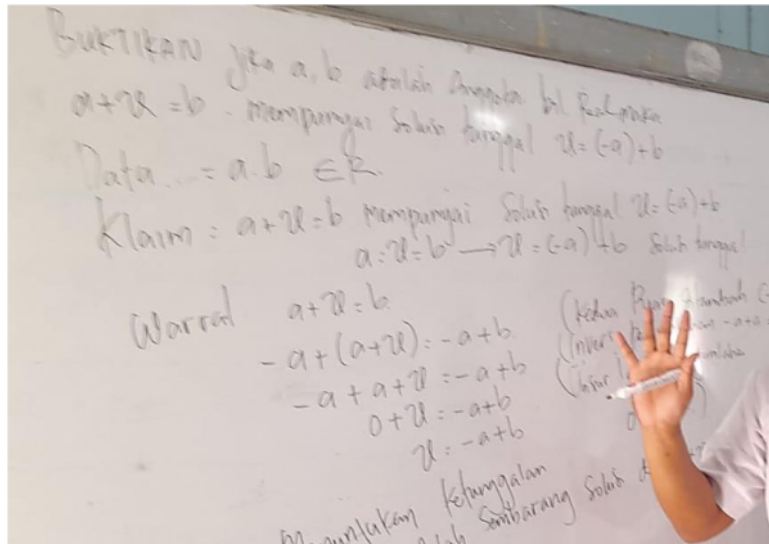 BUKTIKAN jika a, b adalah Anggota bil Real maka
a+x=b . mempunyai Solusi tunggal x=(-a)+b
Data ... = a.b ∈ R.
Klaim = a+x=b mempunyai Solusi tunggal x=(-a)+b
a=x=b → x=(-a)+b Solusi tunggal
Warrat a+x=b.
(kedua
-a+(a+x)=-a+b.
(Invers -a+a
-a+a+x=-a+b
(Unsur
0+x=-a+b
x=-a+b
Menunjukan Ketunggalan
Sembarang Solusi